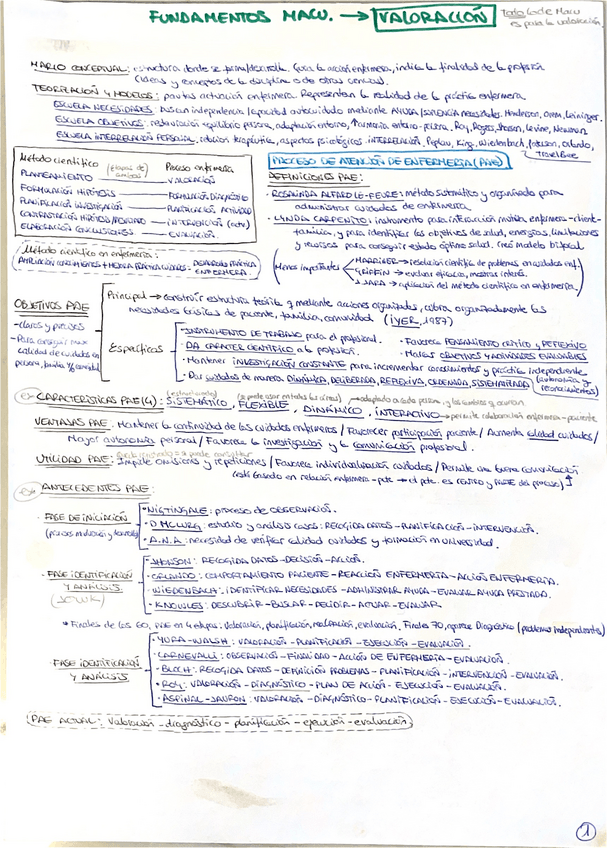 FUNDAMENTOS MACU. → VALORACIÓN
Todo lo de Macu
es para la valoración.
MARCO CONCEPTUAL: estructura donde se forma/desarrolla. Guía la acción enfermera, indica la finalidad de la profesión
(ideas y conceptos de la disciplina o de otras ciencias).
TEORIZACIÓN Y MODELOS: pautas actuación enfermera. Representan la realidad de la práctica enfermera.
ESCUELA NECESIDADES: buscan independencia/capacidad autocuidado mediante AYUDA Henderson, Orem, Leininger.
ESCUELA OBJETIVOS: restauración equilibrio persona, adaptación entorno, ↑armonía entorno-persona. Roy, Rogers, Jhonson, Levine, Newman
ESCUELA INTERRELACIÓN PERSONAL: relación terapéutica, aspectos psicológicos INTERRELACIÓN. Peplau, King, Wiedenbach, Orlando,
Travelbee
Método científico (etapas de ambos) Proceso enfermería
PLANTEAMIENTO — VALORACIÓN
FORMULACIÓN HIPÓTESIS — FORMULACIÓN DIAGNÓSTICO
PLANIFICACIÓN INVESTIGACIÓN — PLANIFICACIÓN ACTIVIDAD
CONTRASTACIÓN HIPÓTESIS — INTERVENCIÓN
ELABORACIÓN CONCLUSIONES — EVALUACIÓN.
Método científico en enfermería:
AMPLIACIÓN CONOCIMIENTOS + MEJORA PRÁCTICA CUIDADOS - DESARROLLO PRÁCTICA
ENFERMERA.
PROCESO DE ATENCIÓN DE ENFERMERÍA (PAE)
DEFINICIONES PAE:
· ROSALINDA ALFARO LE-FEVRE: método sistemático y organizado para
administrar cuidados de enfermería
· LYNDA CARPENITO: instrumento para interacción mutua enfermera-cliente-
familia, y para identificar los objetivos de salud, energías, limitaciones
y recursos para conseguir estado óptimo salud. Creó modelo bifocal
Menos importantes
MARRINER → resolución científica de problemas en cuidados enf.
GRIFFIN → evaluar eficacia, mostrar interés.
YURA → aplicación del método científico en enfermería.
OBJETIVOS PAE
- claros y precisos
- Para conseguir max
calidad de cuidados en
persona, familia y/o comunidad
Principal → construir estructura teórica y mediante acciones organizadas, cubra organizadamente las
necesidades básicas de paciente, familia, comunidad (IYER, 1987)
Específicos
· INSTRUMENTO DE TRABAJO para el profesional.
· DA CARÁCTER CIENTÍFICO a la profesión.
· Mantener INVESTIGACIÓN CONSTANTE para incrementar conocimientos y práctica independiente
· Dar cuidados de manera DINÁMICA, DELIBERADA, REFLEXIVA, ORDENADA, SISTEMATIZADA (autonomía y
reconocimientos)
· Favorece PENSAMIENTO CRÍTICO Y REFLEXIVO
· Marcar OBJETIVOS Y ACTIVIDADES EVALUABLES
CARACTERÍSTICAS PAE(4): SISTEMÁTICO, FLEXIBLE, DINÁMICO, INTERACTIVO → permite colaboración enfermería-paciente
(estructurado) → adaptado a cada persona, y los cambios q ocurran.
VENTAJAS PAE: Mantener la continuidad de los cuidados enfermeros / Favorecer participación paciente / Aumenta calidad cuidados /
Mayor autonomía personal / Favorece la investigación y la comunicación profesional.
UTILIDAD PAE: Impide omisiones y repeticiones / Favorece individualización cuidados / Permite una buena comunicación
(está basado en relación enfermera-pcte → el pcte. es CENTRO y PARTE del proceso)
ANTECEDENTES PAE:
· FASE DE INICIACIÓN
· NIGTINGALE: proceso de OBSERVACIÓN.
· D MCLURG: estudio y análisis casos: RECOGIDA DATOS - PLANIFICACIÓN - INTERVENCIÓN.
· A.N.A: necesidad de verificar calidad cuidados y formación en UNIVERSIDAD.
· FASE IDENTIFICACIÓN
Y ANÁLISIS
(JOWK)
· JHONSON: RECOGIDA DATOS - DECISIÓN - ACCIÓN.
· ORLANDO: COMPORTAMIENTO PACIENTE - REACCIÓN ENFERMERÍA - ACCIÓN ENFERMERÍA.
· WIEDENBACH: IDENTIFICAR NECESIDADES - ADMINISTRAR AYUDA - EVALUAR AYUDA PRESTADA.
· KNOWLES: DESCUBRIR - BUSCAR - DECIDIR - ACTUAR - EVALUAR.
* Finales de los 60, PAE en 4 etapas: Valoración, planificación, realización, evaluación. Finales 70, aparece Diagnóstico (problemas independientes)
FASE IDENTIFICACIÓN
Y ANÁLISIS
· YURA-WALSH: VALORACIÓN - PLANIFICACIÓN - EJECUCIÓN - EVALUACIÓN.
· CARNEVALLI: OBSERVACIÓN - FINALIDAD - ACCIÓN DE ENFERMERÍA - EVALUACIÓN.
· BLOCH: RECOGIDA DATOS - DEFINICIÓN PROBLEMAS - PLANIFICACIÓN - INTERVENCIÓN - EVALUACIÓN.
· ROY: VALORACIÓN - DIAGNÓSTICO - PLAN DE ACCIÓN - EJECUCIÓN - EVALUACIÓN.
· ASPINAL-JAURON: VALORACIÓN - DIAGNÓSTICO - PLANIFICACIÓN - EJECUCIÓN - EVALUACIÓN.
PAE ACTUAL: Valoración - diagnóstico - planificación - ejecución - evaluación
1